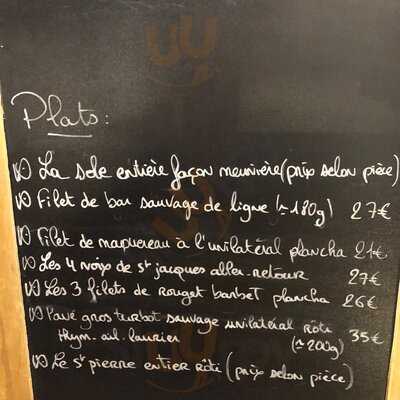 Plats :
La sole entière façon meunière (prix selon pièce)
Filet de bar sauvage de ligne (~ 180g) 27€
Filet de maquereau à l'unilatéral plancha 21€
Les 4 noix de st jacques aller-retour 27€
Les 3 filets de rouget barbet plancha 26€
Pavé gros turbot sauvage unilatéral rôti
thym-ail-laurier (~ 200g) 35€
Le St pierre entier rôti (prix selon pièce)